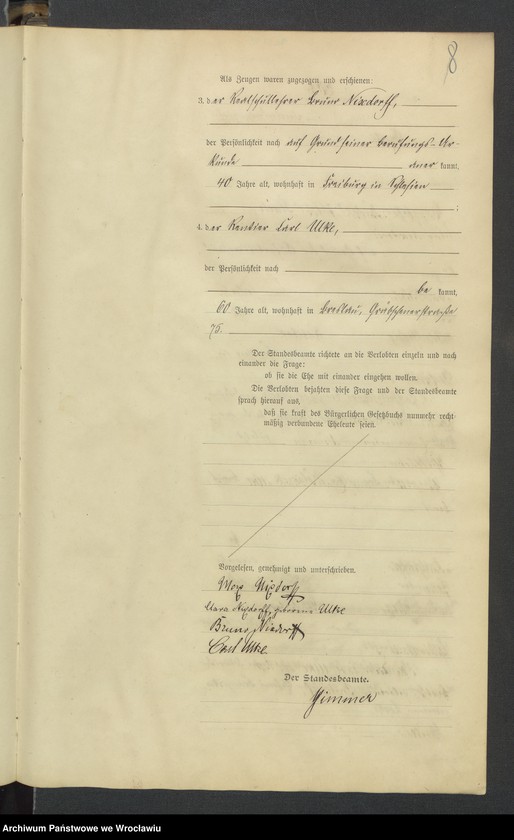 8
Als Zeugen waren zugezogen und erschienen:
3. der Realschullehrer Bruno Nixdorff,
der Persönlichkeit nach auf Grund seiner Berufungs-Ur-
kunde anerkannt,
40 Jahre alt, wohnhaft in Freiburg in Schlesien
;
4. der Rentier Carl Ulke,
der Persönlichkeit nach
bekannt,
60 Jahre alt, wohnhaft in Breslau, Gräbschenerstraße
75.
Der Standesbeamte richtete an die Verlobten einzeln und nach
einander die Frage:
ob sie die Ehe mit einander eingehen wollen.
Die Verlobten bejahten diese Frage und der Standesbeamte
sprach hierauf aus,
daß sie kraft des Bürgerlichen Gesetzbuchs nunmehr recht
mäßig verbundene Eheleute seien.
Vorgelesen, genehmigt und unterschrieben.
Max Nixdorff
Clara Nixdorff, geborene Ulke
Bruno Nixdorff
Carl Ulke
Der Standesbeamte.
Archiwum Państwowe we Wrocławiu